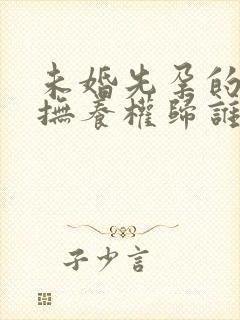 未婚先孕的
撫養權歸誰
子少言